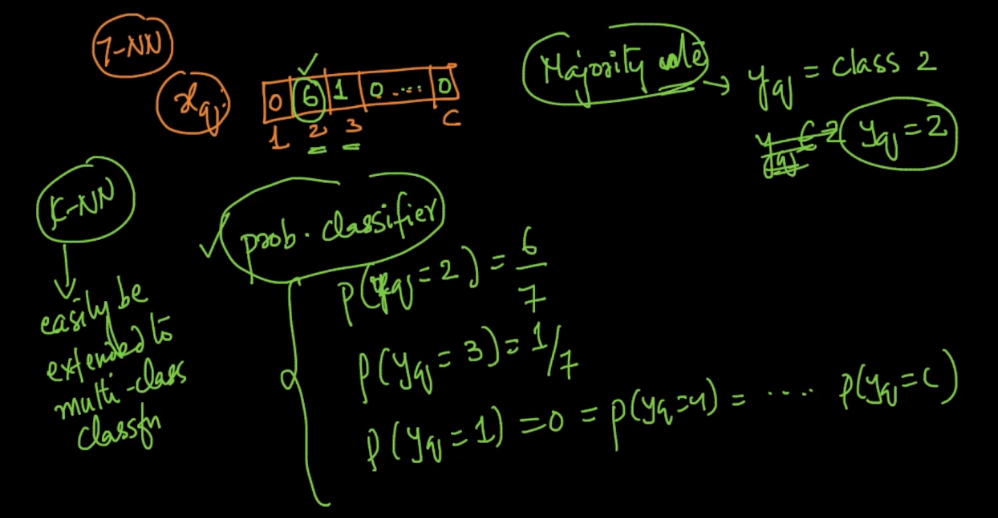 7-NN
x_q
0 6 1 0 .... 0
1 2 3 C
Majority vote → y_q = class 2
y_q = 2
K-NN
easily be
extended to
multi-class
classfn
prob. classifier
P(y_q=2) = 6/7
P(y_q=3) = 1/7
P(y_q=1) = 0 = P(y_q=4) = .... P(y_q=C)